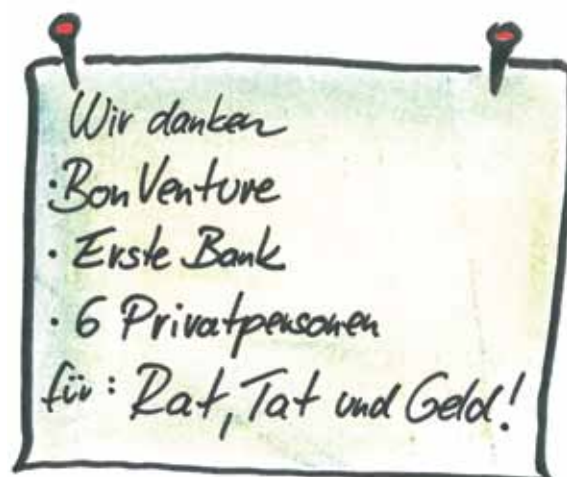 Wir danken
· BonVenture
· Erste Bank
· 6 Privatpersonen
für: Rat, Tat und Geld!